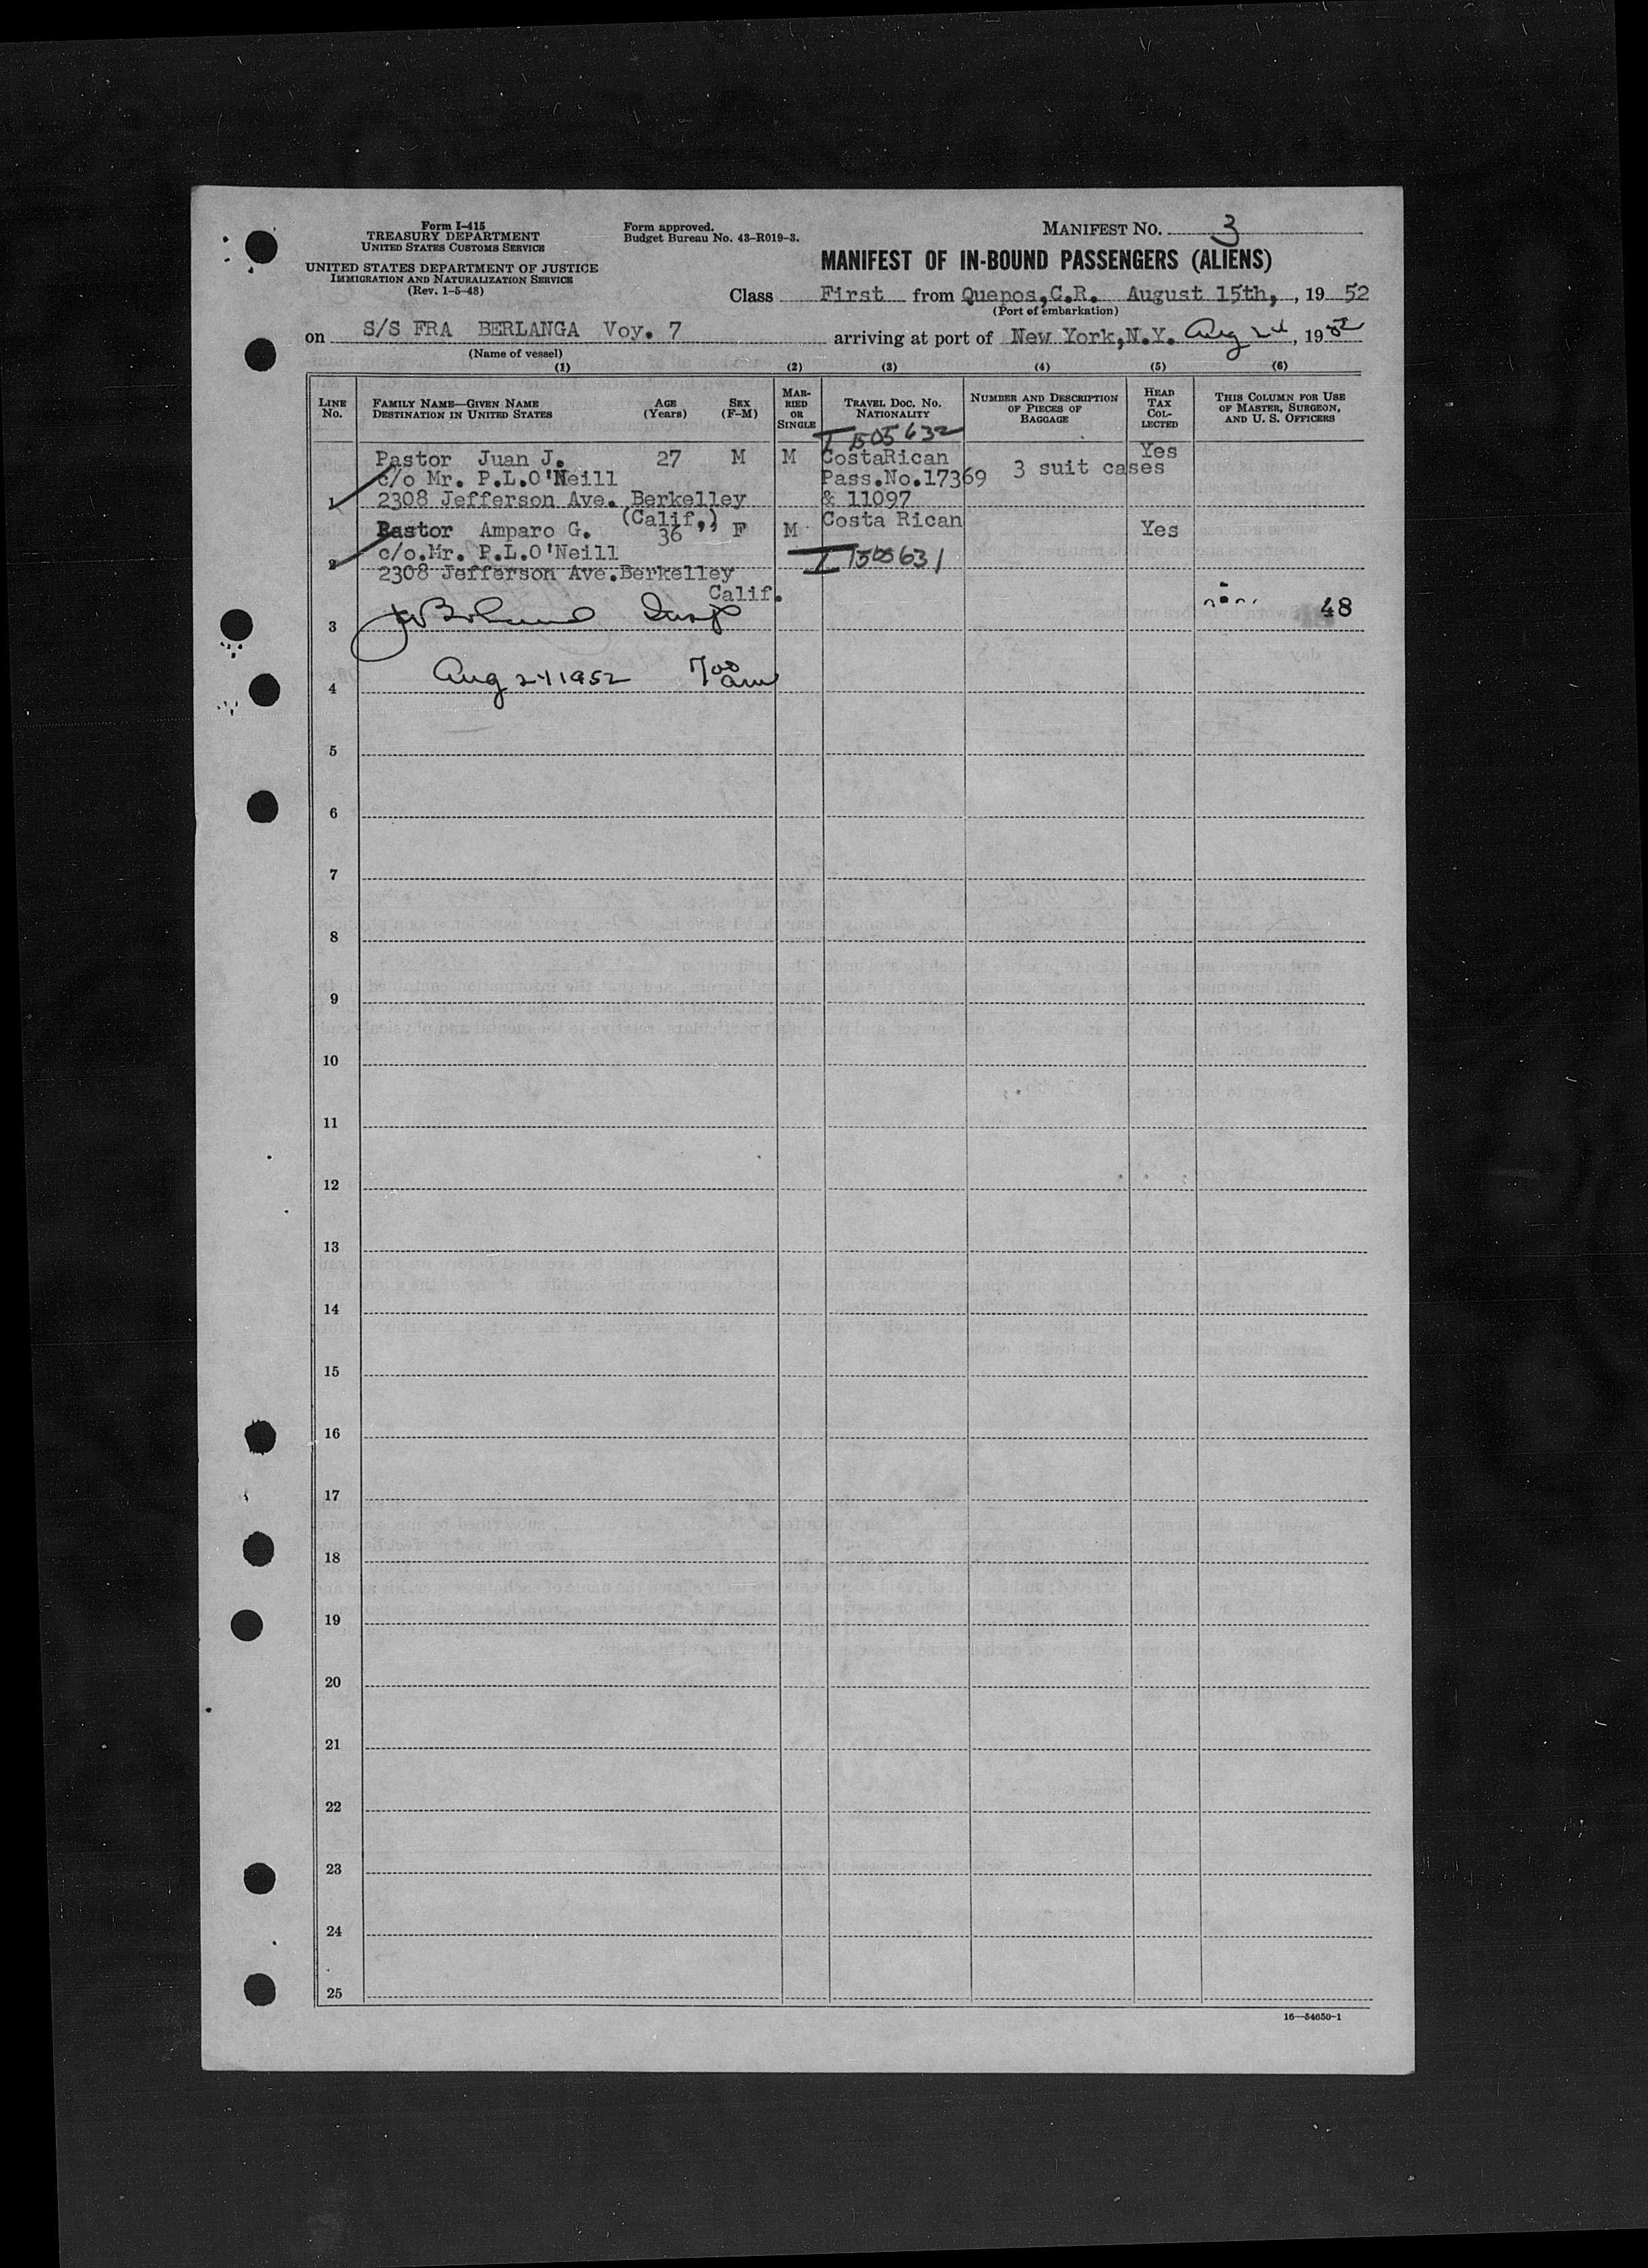 Form I-415
TREASURY DEPARTMENT
UNITED STATES CUSTOMS SERVICE
UNITED STATES DEPARTMENT OF JUSTICE
IMMIGRATION AND NATURALIZATION SERVICE
(Rev. 1-5-48)
Form approved.
Budget Bureau No. 43-R019-3.
MANIFEST No. 3
MANIFEST OF IN-BOUND PASSENGERS (ALIENS)
Class First from Quepos,C.R. August 15th, , 19 52
(Port of embarkation)
on S/S FRA BERLANGA Voy. 7 arriving at port of New York,N.Y. Aug , 1952
(Name of vessel)
(1) (2) (3) (4) (5) (6)
LINE No. FAMILY NAME—GIVEN NAME DESTINATION IN UNITED STATES AGE (Years) SEX (F-M) MARRIED OR SINGLE TRAVEL DOC. NO. NATIONALITY NUMBER AND DESCRIPTION OF PIECES OF BAGGAGE HEAD TAX COLLECTED THIS COLUMN FOR USE OF MASTER, SURGEON, AND U. S. OFFICERS
I 1505632
Pastor Juan J. 27 M M CostaRican 3 suit cases Yes
c/o Mr. P.L.O'Neill Pass.No.17369
1 2308 Jefferson Ave. Berkelley & 11097
(Calif,)
Pastor Amparo G. 36 F M Costa Rican Yes
c/o.Mr. P.L.O'Neill I 1505631
2 2308 Jefferson Ave.Berkelley
Calif.
3 48
4 Aug 24 1952 7 00 am
5
6
7
8
9
10
11
12
13
14
15
16
17
18
19
20
21
22
23
24
25
16—54650-1